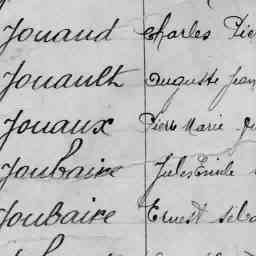 Jouaud Charles Pie
Jouault Auguste Jean
Jouaux Pierre Marie
Joubaire Jules Emile
Joubaire Ernest